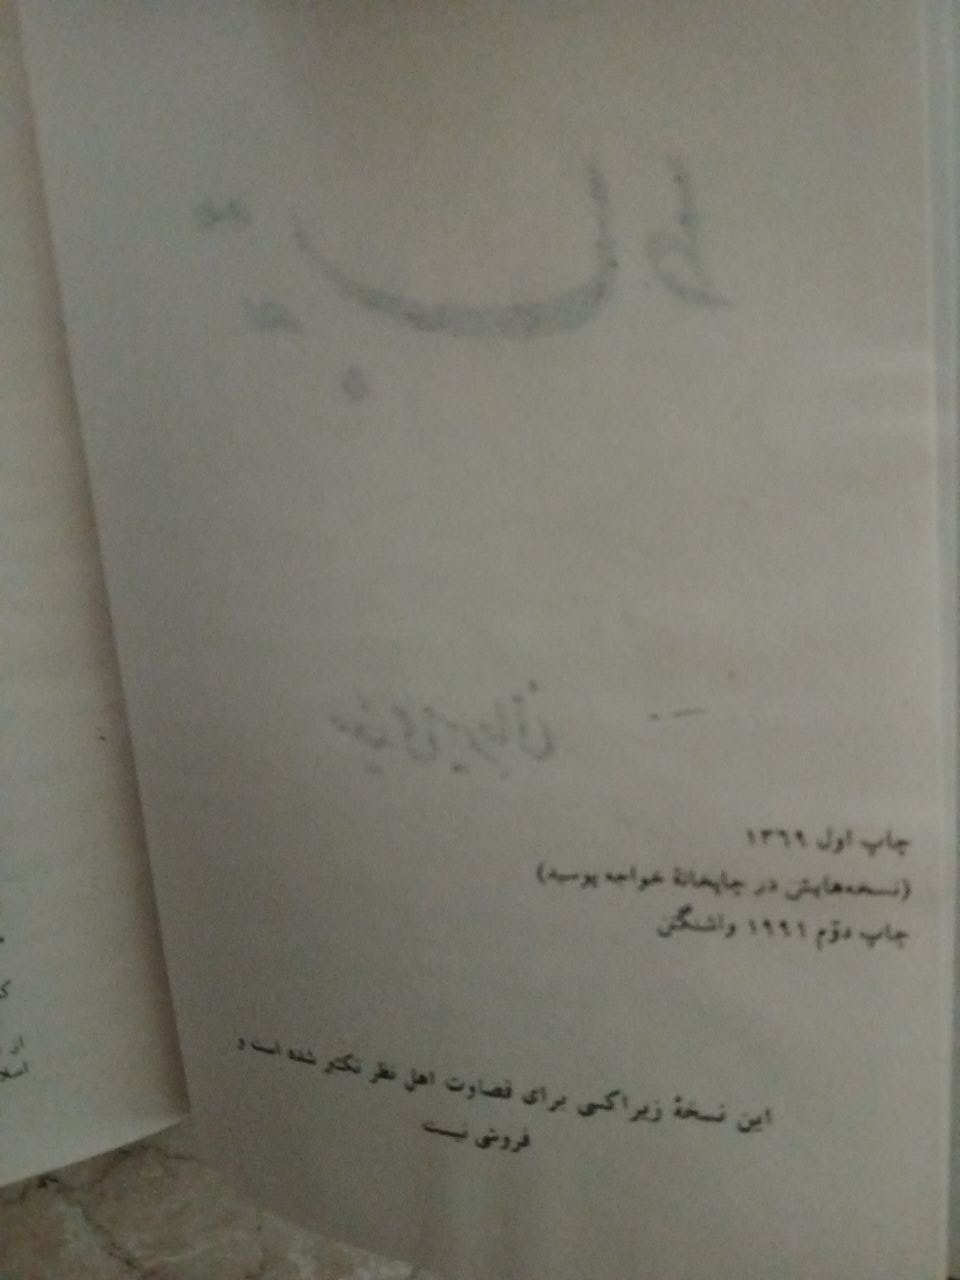 چاپ اول ۱۳۶۹
(نسخه‌هایش در چاپخانهٔ خواجه پوسید)
چاپ دوّم ۱۹۹۶ واشنگتن
این نسخهٔ زیراکسی برای قضاوت اهل نظر تکثیر شده است و
فروشی نیست